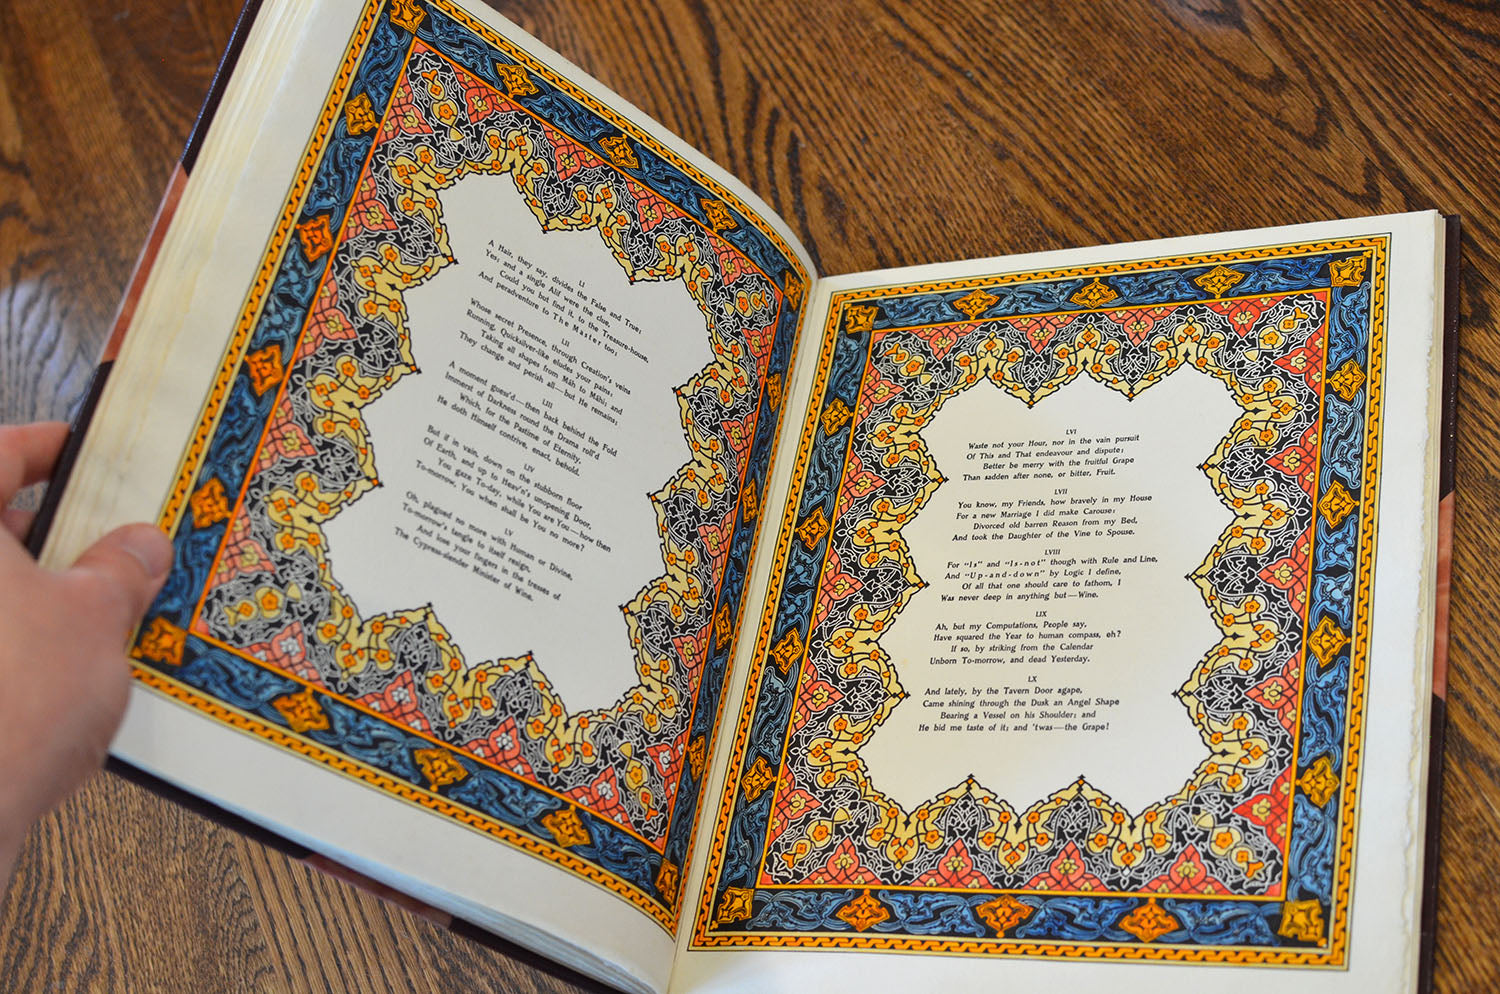 LI
A Hair, they say, divides the False and True;
Yes; and a single Alif were the clue,
Could you but find it, to the Treasure-house,
And peradventure to The Master too;
LII
Whose secret Presence, through Creation's veins
Running, Quicksilver-like eludes your pains:
Taking all shapes from Máh to Máhi; and
They change and perish all—but He remains;
LIII
A moment guess'd—then back behind the Fold
Immerst of Darkness round the Drama roll'd
Which, for the Pastime of Eternity,
He doth Himself contrive, enact, behold.
LIV
But if in vain, down on the stubborn floor
Of Earth, and up to Heav'n's unopening Door,
You gaze To-day, while You are You—how then
To-morrow, You when shall be You no more?
LV
Oh, plagued no more with Human or Divine,
To-morrow's tangle to itself resign,
And lose your fingers in the tresses of
The Cypress-slender Minister of Wine.
LVI
Waste not your Hour, nor in the vain pursuit
Of This and That endeavour and dispute;
Better be merry with the fruitful Grape
Than sadden after none, or bitter, Fruit.
LVII
You know, my Friends, how bravely in my House
For a new Marriage I did make Carouse:
Divorced old barren Reason from my Bed,
And took the Daughter of the Vine to Spouse.
LVIII
For "Is" and "Is-not" though with Rule and Line,
And "Up-and-down" by Logic I define,
Of all that one should care to fathom, I
Was never deep in anything but—Wine.
LIX
Ah, but my Computations, People say,
Have squared the Year to human compass, eh?
If so, by striking from the Calendar
Unborn To-morrow, and dead Yesterday.
LX
And lately, by the Tavern Door agape,
Came shining through the Dusk an Angel Shape
Bearing a Vessel on his Shoulder; and
He bid me taste of it; and 'twas—the Grape!